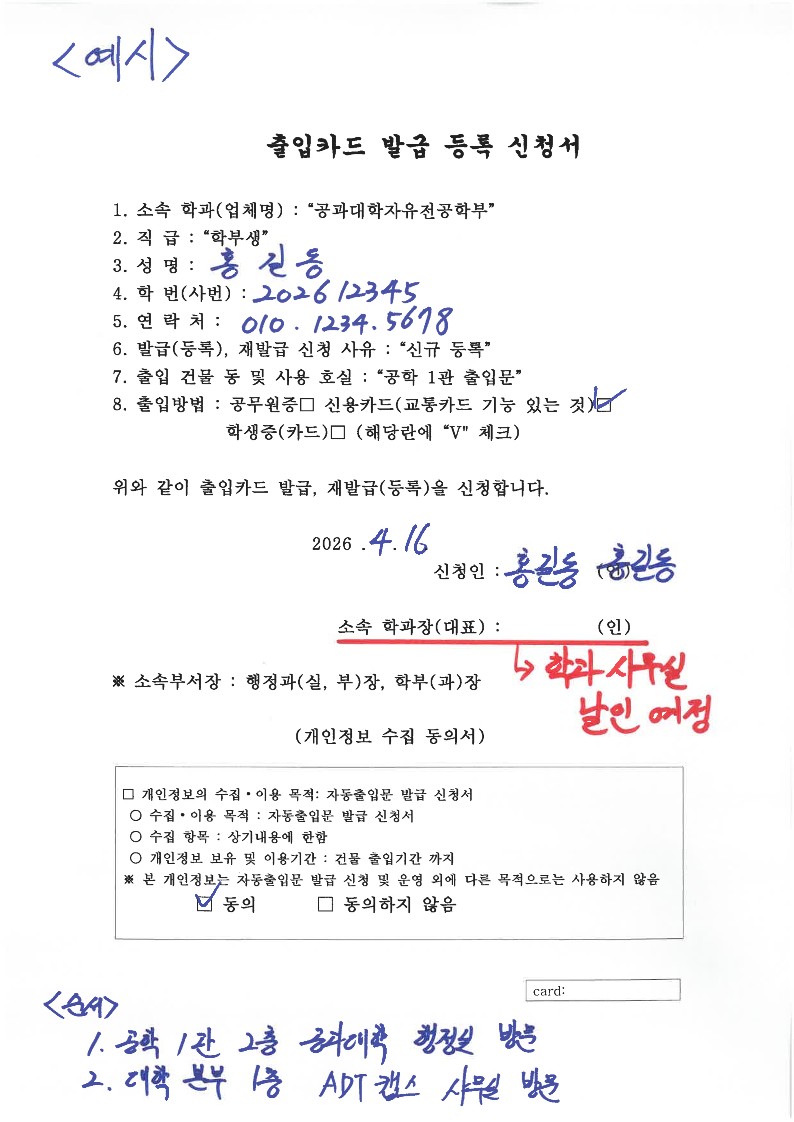 <예시>
출입카드 발급 등록 신청서
1. 소속 학과(업체명) : “공과대학자유전공학부”
2. 직 급 : “학부생”
3. 성 명 : 홍 길 동
4. 학 번(사번) : 2026 12345
5. 연 락 처 : 010 . 1234 . 5678
6. 발급(등록), 재발급 신청 사유 : “신규 등록”
7. 출입 건물 동 및 사용 호실 : “공학 1관 출입문”
8. 출입방법 : 공무원증□ 신용카드(교통카드 기능 있는 것)☑
학생증(카드)□ (해당란에 “V" 체크)
위와 같이 출입카드 발급, 재발급(등록)을 신청합니다.
2026 . 4 . 16
신청인 : 홍길동 (인) 홍길동
소속 학과장(대표) : (인)
↳ 학과 사무실
날인 예정
※ 소속부서장 : 행정과(실, 부)장, 학부(과)장
(개인정보 수집 동의서)
□ 개인정보의 수집・이용 목적: 자동출입문 발급 신청서
○ 수집・이용 목적 : 자동출입문 발급 신청서
○ 수집 항목 : 상기내용에 한함
○ 개인정보 보유 및 이용기간 : 건물 출입기간 까지
※ 본 개인정보는 자동출입문 발급 신청 및 운영 외에 다른 목적으로는 사용하지 않음
☑ 동의 □ 동의하지 않음
card:
<순서>
1. 공학 1관 2층 공과대학 행정실 방문
2. 대학 본부 1층 ADT 캡스 사무실 방문